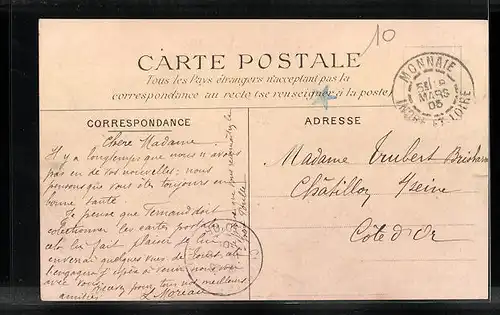 10
CARTE POSTALE
Tous les Pays étrangers n'acceptant pas la
correspondance au recto (se renseigner à la poste)
MONNAIE
MARS
05
INDRE-ET-LOIRE
CORRESPONDANCE
ADRESSE
Chère Madame
Il y a longtemps que nous n'avons
pas eu de vos nouvelles; nous
pensons que vous êtes toujours en
bonne santé
Je pense que Fernand doit
collectionner les cartes postales
cela lui fait plaisir je lui
envenai quelques vues de
avec vous. Recevez pour tous nos meilleurs
amitiés L. Moreau
Madame Imbert
Châtillon s/ Seine
Côte d'Or